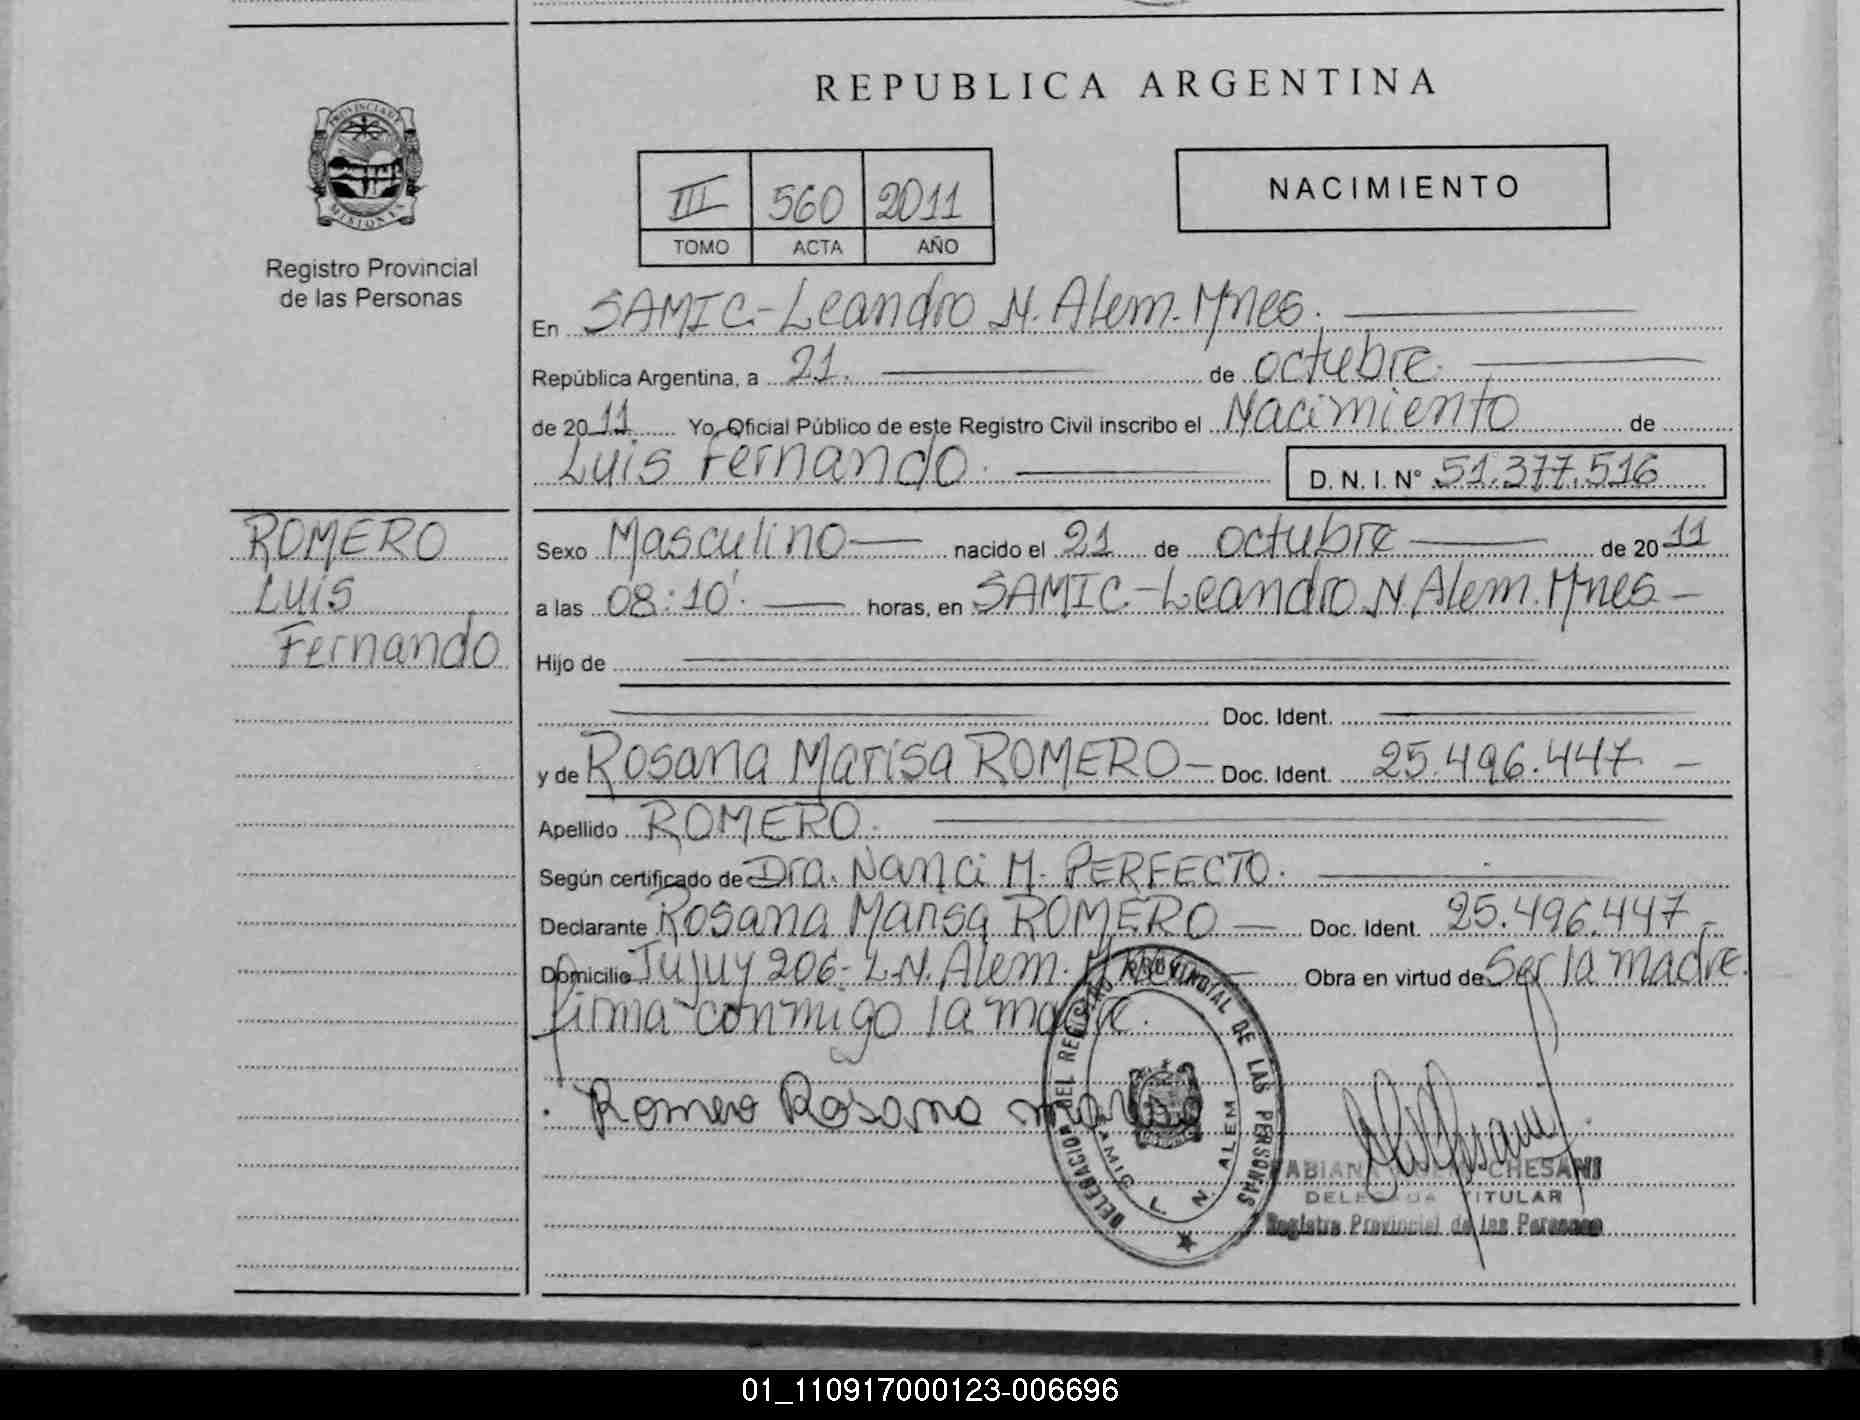 REPUBLICA ARGENTINA
PROVINCIA DE
MISIONES
Registro Provincial
de las Personas
III 560 2011
TOMO ACTA AÑO
NACIMIENTO
En SAMIC-Leandro N. Alem. Mnes.
República Argentina, a 21. de octubre.
de 2011. Yo, Oficial Público de este Registro Civil inscribo el Nacimiento de
Luis Fernando. D. N. I. N° 51.377.516
ROMERO
Luis
Fernando
Sexo Masculino nacido el 21 de octubre de 2011
a las 08:10'. horas, en SAMIC-Leandro N. Alem. Mnes
Hijo de
Doc. Ident.
y de Rosana Marisa ROMERO Doc. Ident. 25.496.447
Apellido ROMERO.
Según certificado de Dra. Nanci M. PERFECTO.
Declarante Rosana Marisa ROMERO Doc. Ident. 25.496.447
Domicilio Jujuy 206-L.N. Alem. Mnes Obra en virtud de Ser la madre.
firma conmigo la madre.
Romero Rosana marisa
DELEGACION DEL REGISTRO PROVINCIAL DE LAS PERSONAS
SAMIC L. N. ALEM
FABIANA CHESANI
DELEGADA TITULAR
Registro Provincial de las Personas
01_110917000123-006696